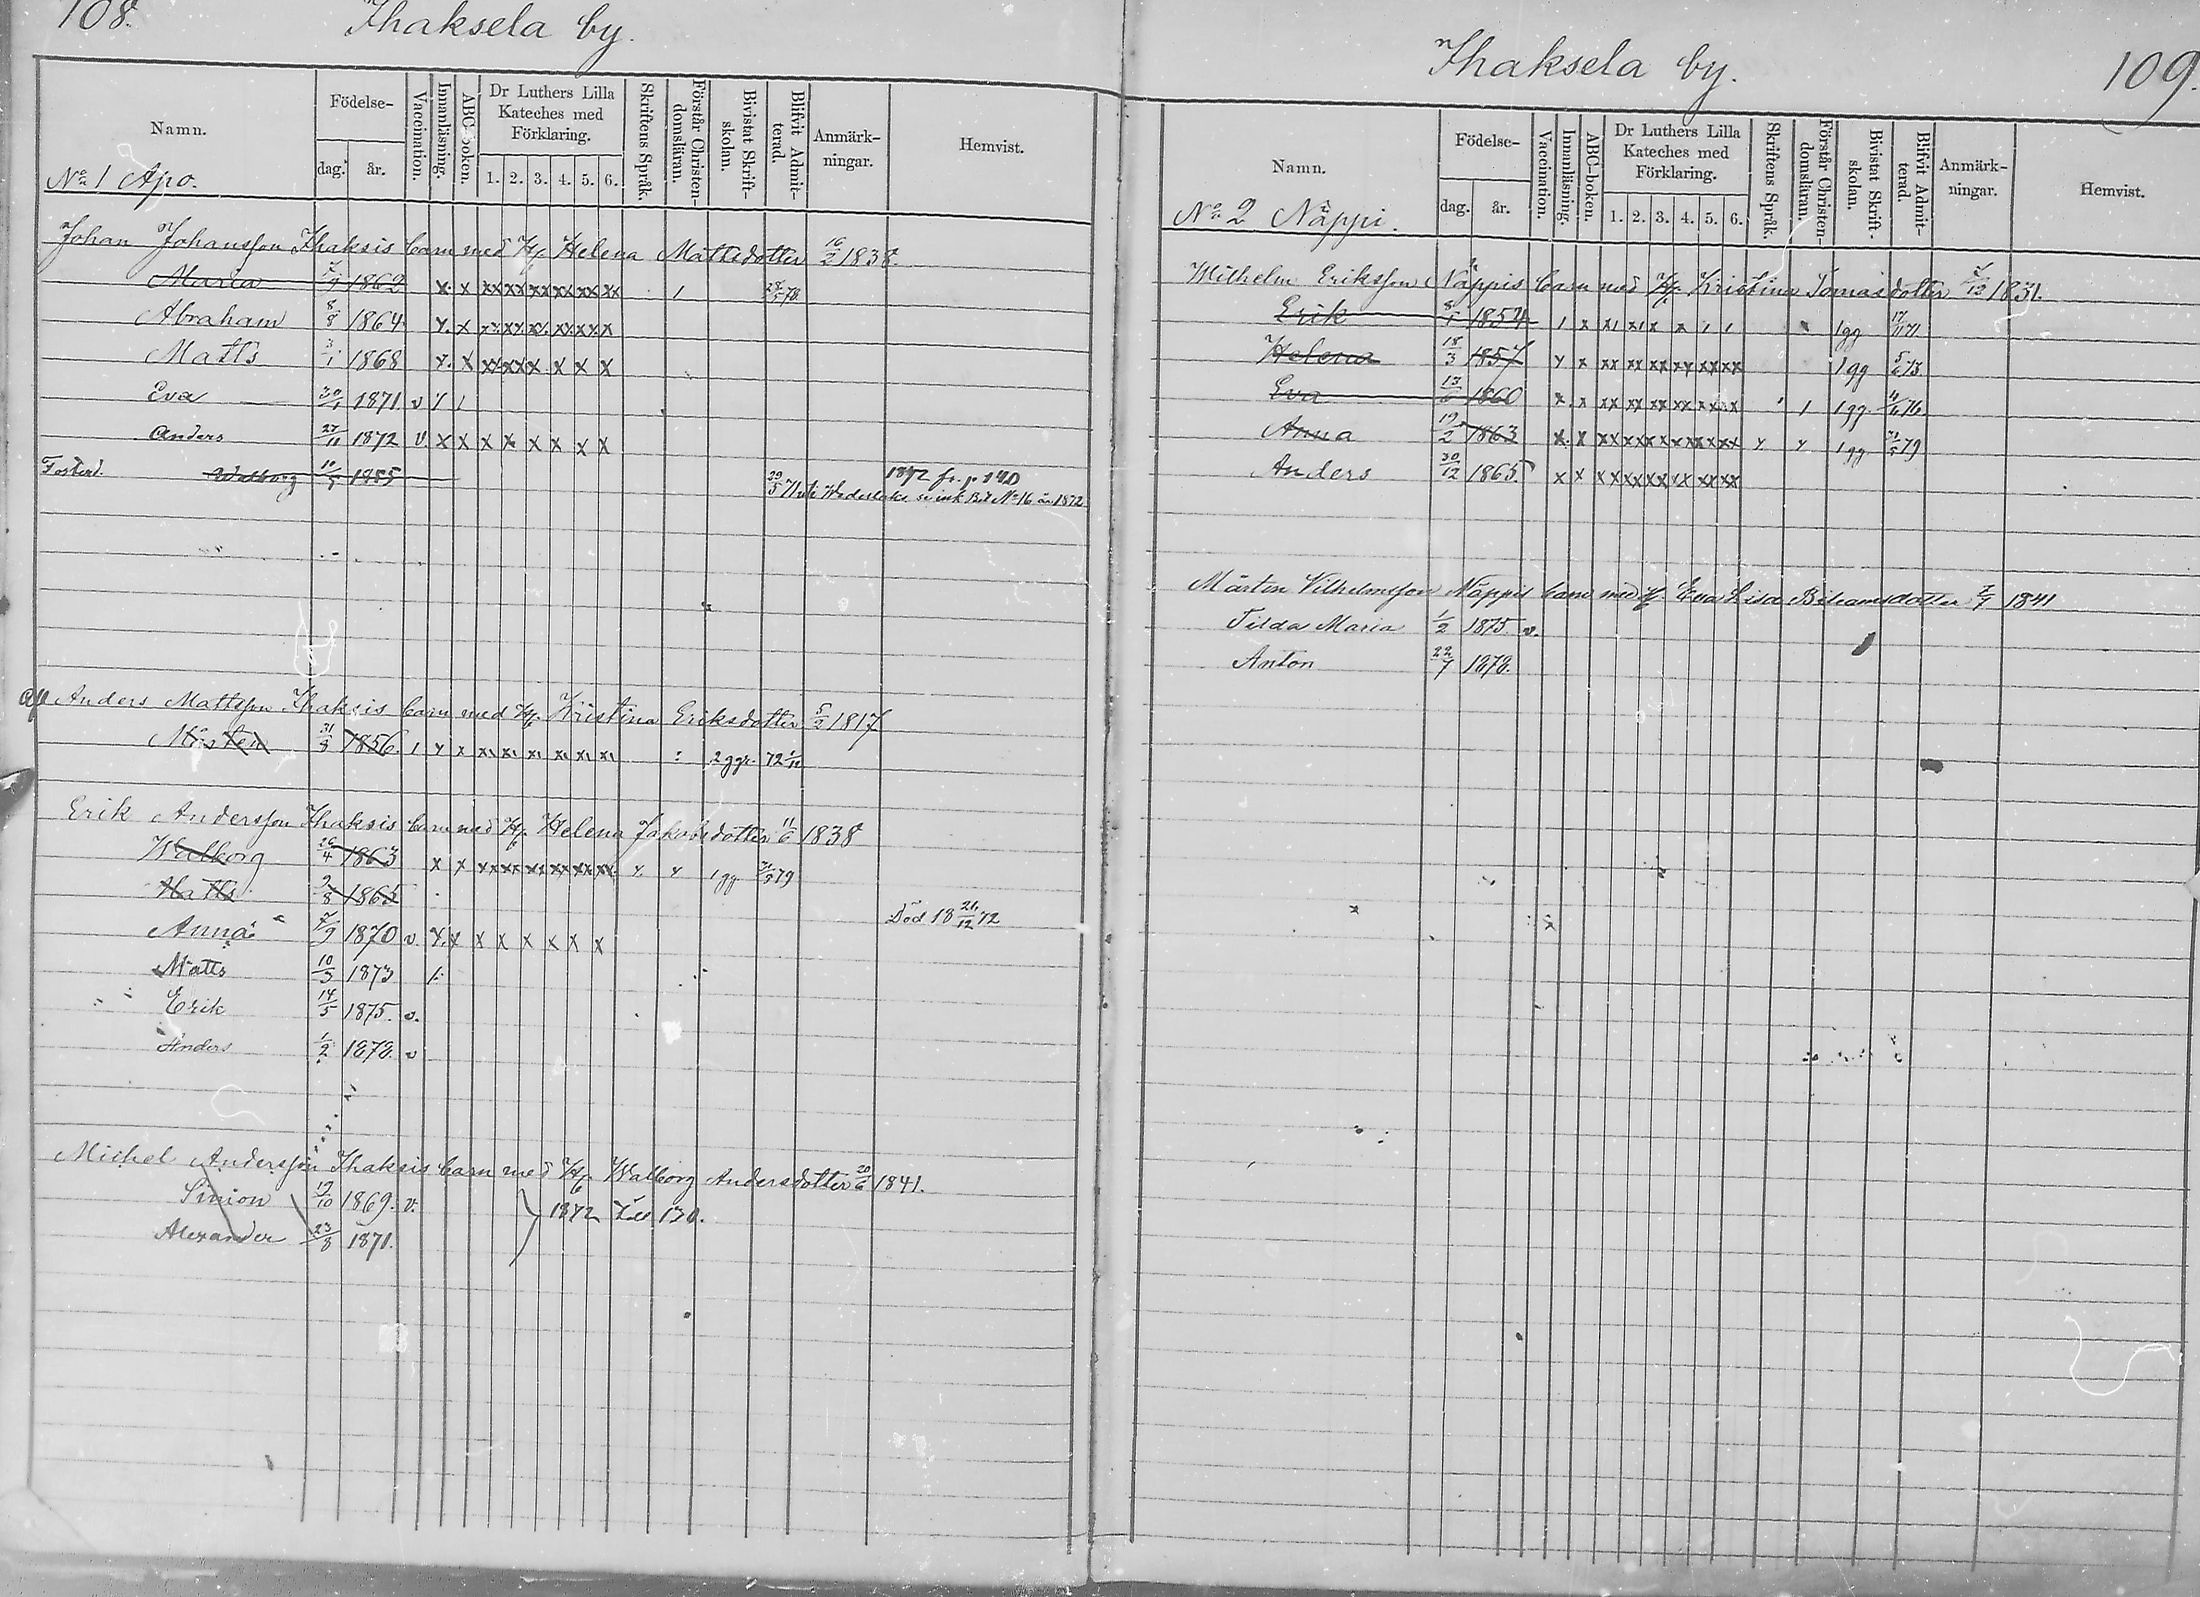 108.
Ihaksela by.
Namn.
Födelse-
dag.
år.
Vaccination.
Innanläsning.
ABC-boken.
Dr Luthers Lilla
Kateches med
Förklaring.
1. 2. 3. 4. 5. 6.
Skriftens Språk.
Förstår Christen-
domsläran.
Bivistat Skrift-
skolan.
Blifvit Admit-
terad.
Anmärk-
ningar.
Hemvist.
No 1 Apo.
Johan Johansson Ihaksis barn med H. Helena Mattsdotter 16/2 1838.
Maria 1862 x. x xx xx xx xx xx xx 1 28/5 78
Abraham 8/8 1864
Matts 3/1 1868
Eva 1871 v
Anders 27/11 1872 v. x x x x x x x x
Fosterd. Walborg 10/5 1855 1872 fr. p. 140
No 16 år 1872
Anders Mattsson Ihaksis barn med H. Kristina Eriksdotter 5/2 1817
Mårten 31/3 1856 2 ggr.
Erik Andersson Ihaksis barn med H. Helena Jakobsdotter 11/6 1838
Walborg 26/4 1863 1 gg 79
Matts 1865 Död 18 21/12 72
Anna 1870 v. x x x x x x
Matts 10/3 1873
Erik 14/5 1875. v.
Anders 1/2 1878. v
Michel Andersson Ihaksis barn med H. Walborg Andersdotter 20/6 1841.
Simion 19/10 1869. v. 1872 Till 130.
Alexander 23/8 1871.
Ihaksela by.
109.
Namn.
Födelse-
dag.
år.
Vaccination.
Innanläsning.
ABC-boken.
Dr Luthers Lilla
Kateches med
Förklaring.
1. 2. 3. 4. 5. 6.
Skriftens Språk.
Förstår Christen-
domsläran.
Bivistat Skrift-
skolan.
Blifvit Admit-
terad.
Anmärk-
ningar.
Hemvist.
No 2 Näppi.
Wilhelm Eriksson Näppis barn med H. Kristina Tomasdotter 1831.
Erik 8/1 1854 1 gg 17/11 71
Helena 18/3 1857 1 gg 5/6 73
Eva 13/6 1860 1 gg. 4/6 76
Anna 19/2 1863 1 gg 31/5 79
Anders 30/12 1865.
Mårten Vilhelmsson Näppis barn med H. Eva Lisa 1841
Tilda Maria 1/2 1875. v.
Anton 22/7 1878.